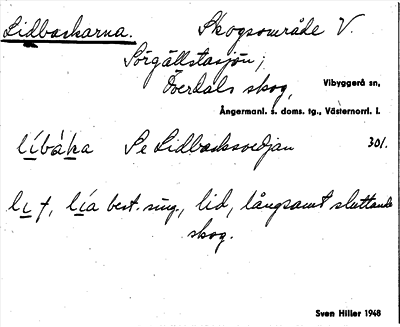 Lidbackarna. Skogsområde V.
Sörgällstasjön;
Överdals skog, Vibyggerå sn,
Ångermanl. s. doms. tg., Västernorrl. l.
lìbáka Se Lidbacksvedjan 30/.
lit, lía best. sing., lid, långsamt sluttande
skog.
Sven Hiller 1948